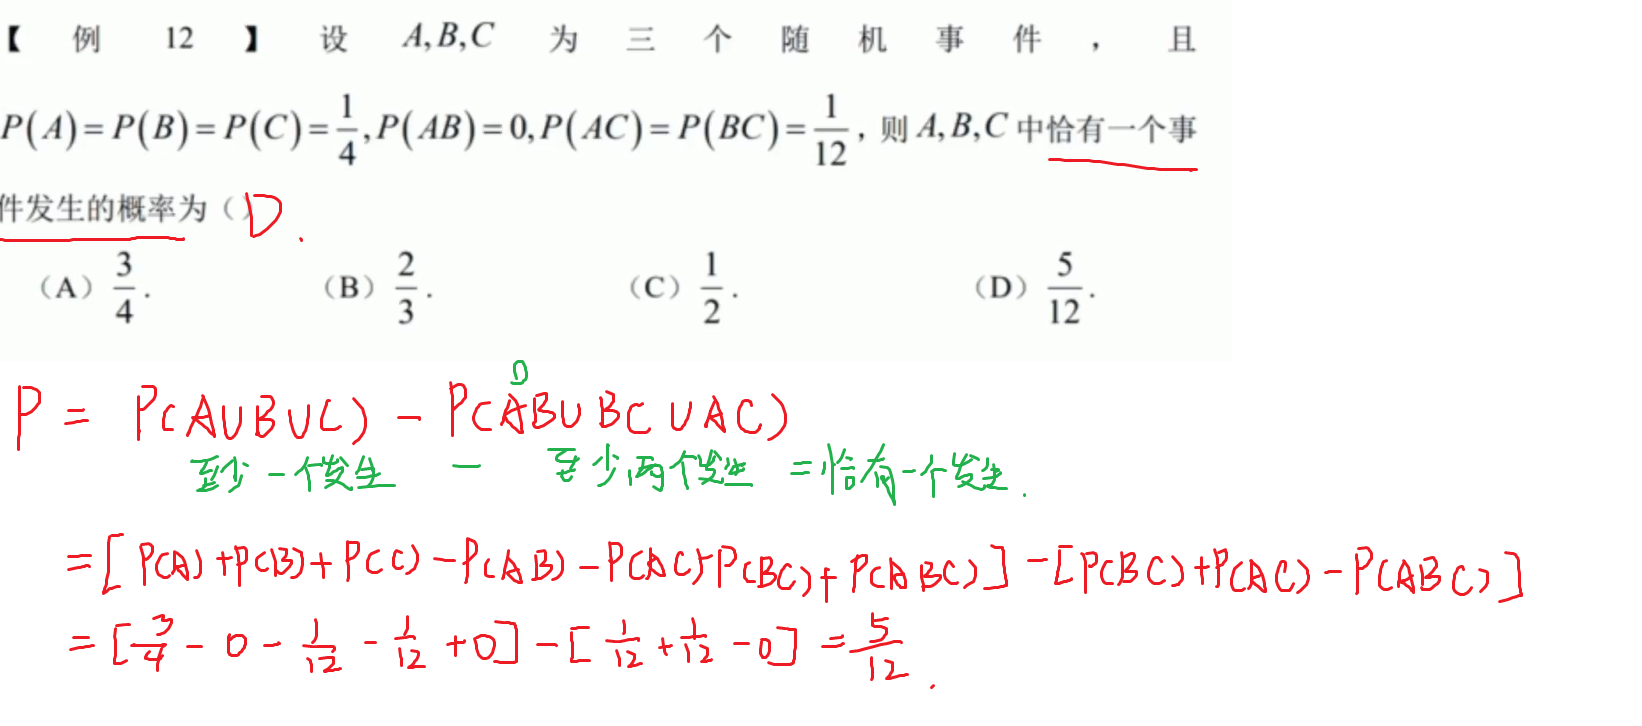 【例 12】设 A,B,C 为三个随机事件，且
P(A)=P(B)=P(C)=1/4,P(AB)=0,P(AC)=P(BC)=1/12，则 A,B,C 中恰有一个事
件发生的概率为（）D.
（A）3/4. （B）2/3. （C）1/2. （D）5/12.
0
P = P(A∪B∪C) - P(AB∪BC∪AC)
至少一个发生 - 至少两个发生 =恰有一个发生.
=[P(A)+P(B)+P(C)-P(AB)-P(AC)-P(BC)+P(ABC)]-[P(BC)+P(AC)-P(ABC)]
=[3/4-0-1/12-1/12+0]-[1/12+1/12-0]=5/12.